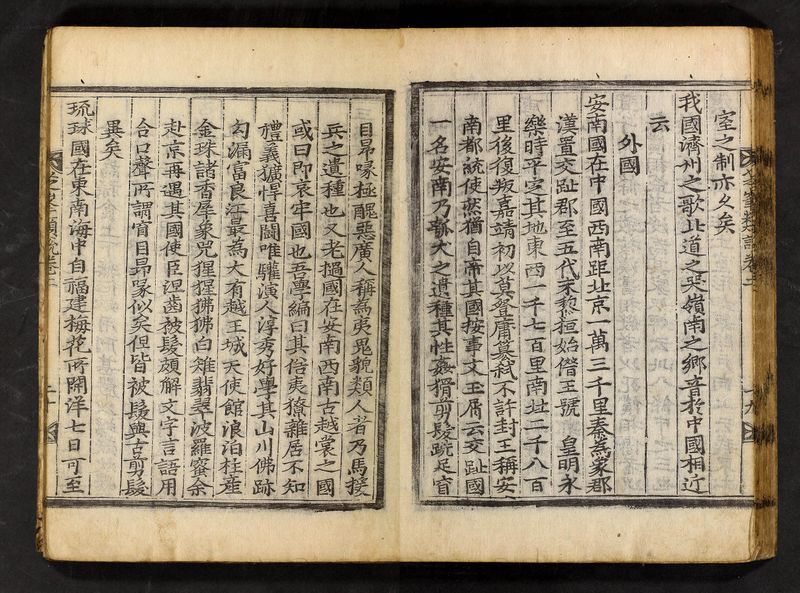 芝峯類說卷二
十九
室之制亦久矣
我國濟州之歌北道之哭嶺南之鄉音於中國相近
云
外國
安南國在中國西南距北京一萬三千里秦爲象郡
漢置交趾郡至五代末黎桓始僭王號 皇明永
樂時平定其地東西一千七百里南北二千八百
里後復叛嘉靖初以莫登庸簒弑不許封王稱安
南都統使然猶自帝其國按事文玉屑云交趾國
一名安南乃瓠犬之遺種其性姦猾剪髮跣足窅
目昂喙極醜惡廣人稱爲夷鬼貌類人者乃馬援
兵之遺種也又老撾國在安南西南古越裳之國
或曰卽哀牢國也吾學編曰其俗夷獠雜居不知
禮義獷悍喜鬪唯驩演人淳秀好學其山川佛跡
勾漏富良江最爲大有越王城天使館浪泊柱産
金珠諸香犀象兕猩猩狒狒白雉翡翠波羅蜜余
赴京再遇其國使臣涅齒被髮頗解文字言語用
合口聲所謂窅目昂喙似矣但皆被髮與古剪髮
異矣
琉球國在東南海中自福建梅花所開洋七日可至
芝峯類說卷二
二十